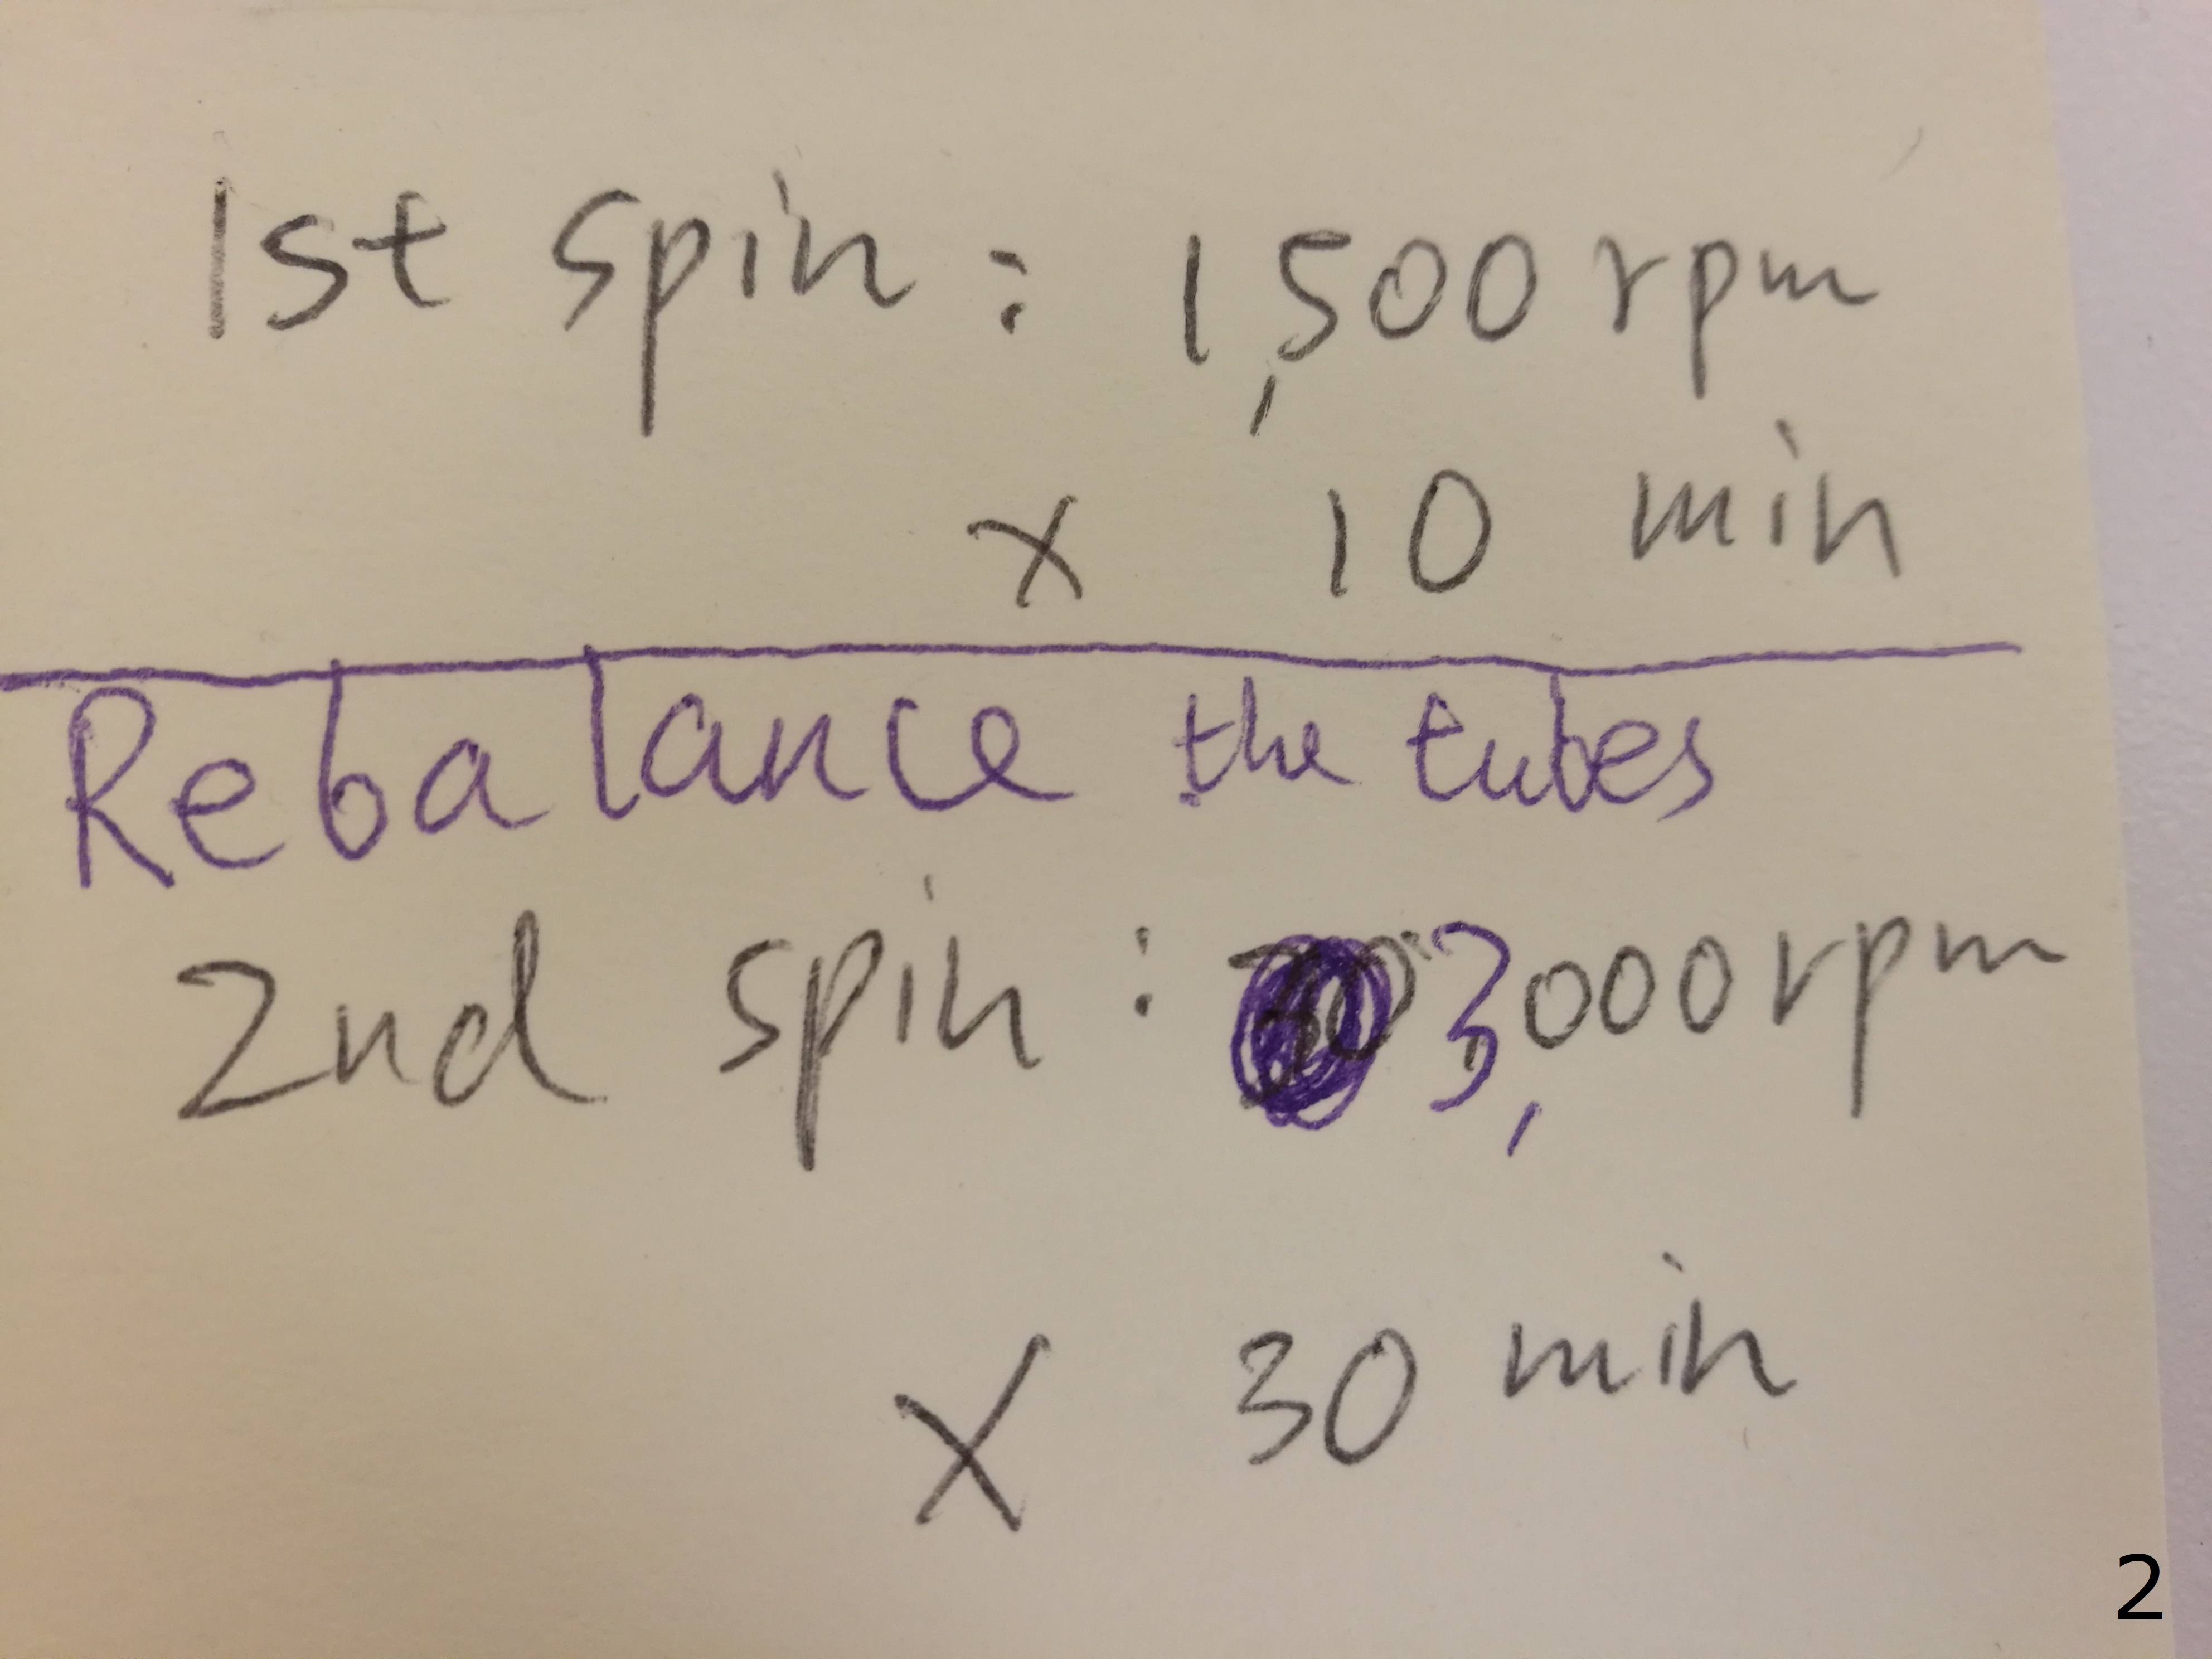 1st spin : 1,500 rpm
x 10 min
Rebalance the tubes
2nd spin : 3,000 rpm
x 30 min
2